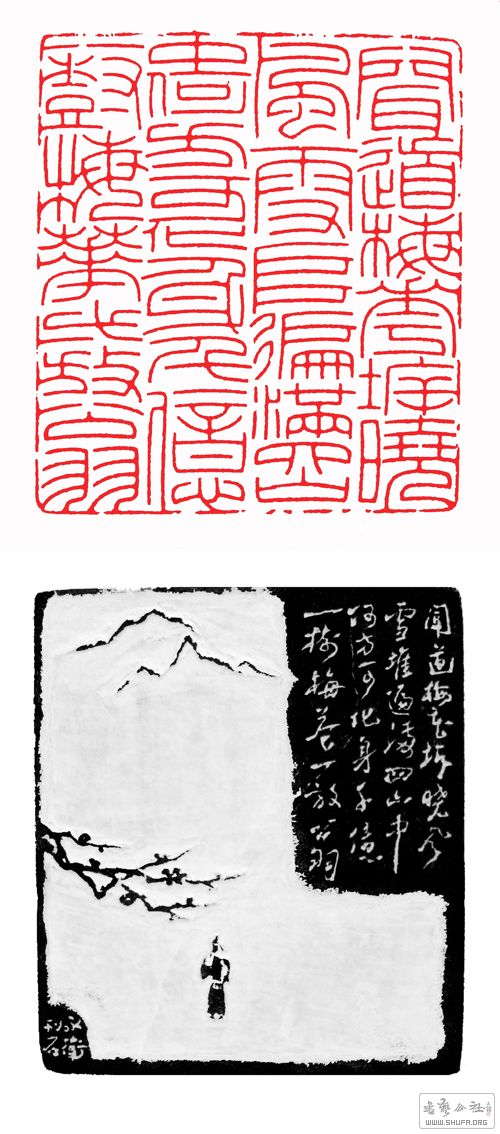 聞道梅華坼曉
風雪堆徧滿四山
中何方可化身千億
樹梅華一放翁
聞道梅花坼曉風
雪堆遍滿四山中
何方可化身千億
一樹梅花一放翁
书艺公社
WWW.SHUFA.ORG